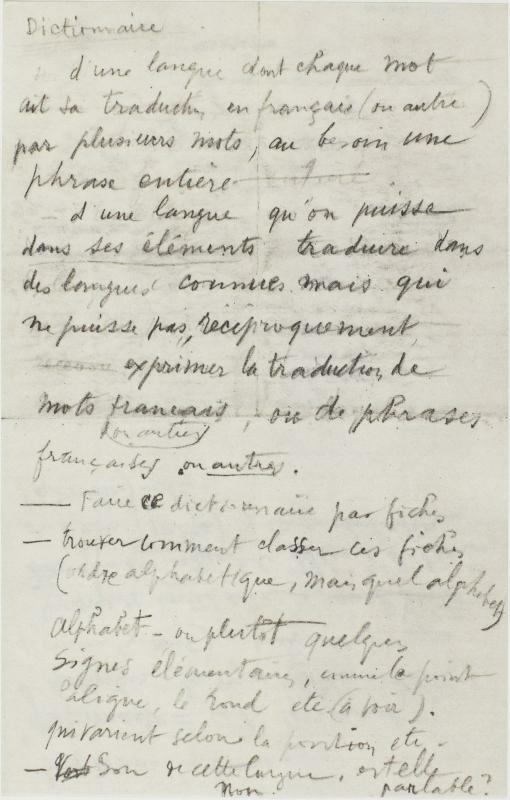 Dictionnaire
d'une langue dont chaque mot
ait sa traduction en français (ou autre)
par plusieurs mots, au besoin une
phrase entière
— d'une langue qu'on puisse
dans ses éléments traduire dans
des langues connues mais qui
ne puisse pas, réciproquement,
exprimer la traduction de
mots français, ou de phrases
(ou autres)
françaises ou autres.
— Faire ce dictionnaire par fiches
— trouver comment classer ces fiches
(ordre alphabétique, mais quel alphabet)
Alphabet — ou plutôt quelques
signes élémentaires, comme le point
la ligne, le rond etc (à voir).
qui varient selon la position etc.
— Son de cette langue, est elle
parlable?
Non.